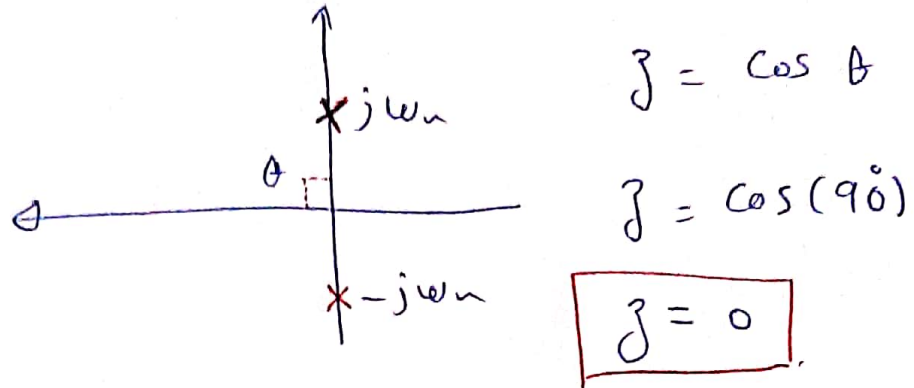 jωn
θ
-jωn
ζ = cos θ
ζ = cos(90°)
ζ = 0